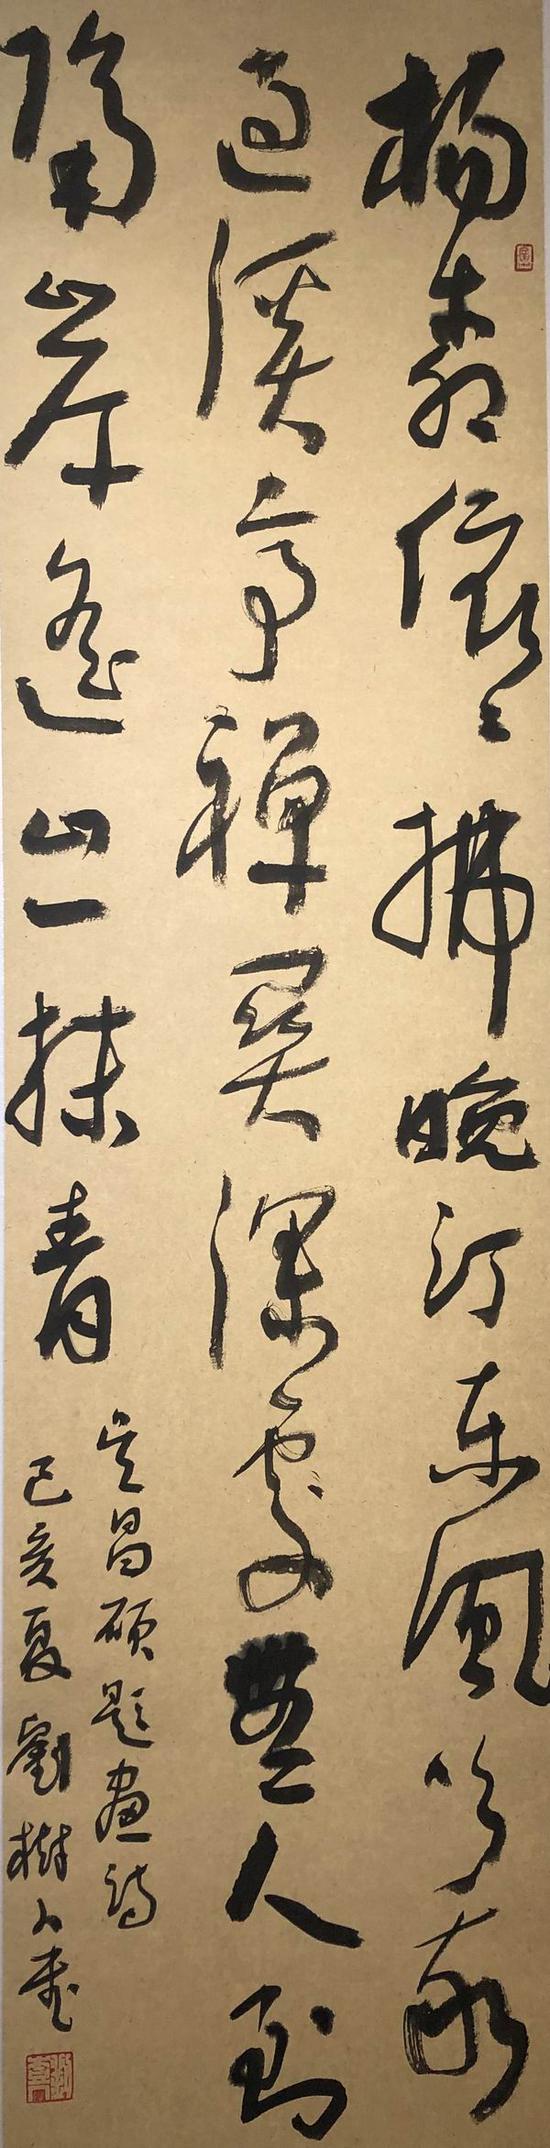 楊柳依〻拂晚汀東風吹夢
過溪亭禪關深處無人到
隔岸遙山一抹青
吳昌碩題畫詩
己亥夏劉樹人